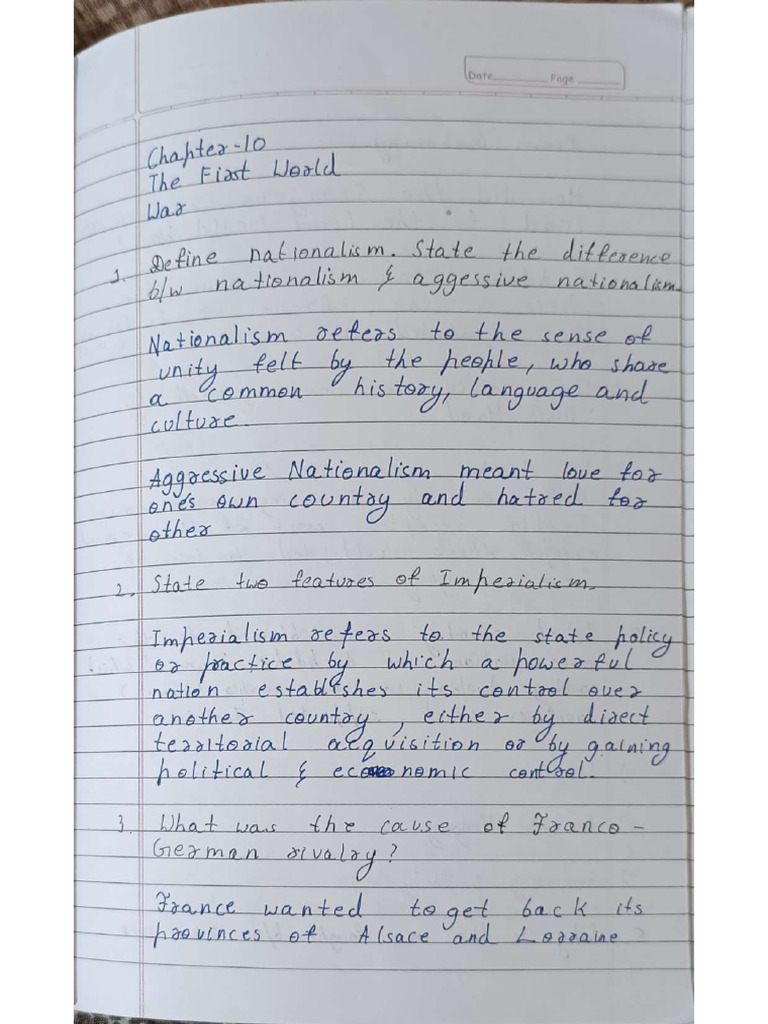 Date Page
Chapter-10
The First World
War
1. Define nationalism. State the difference
b/w nationalism & aggessive nationalism.
Nationalism refers to the sense of
unity felt by the people, who share
a common history, language and
culture.
Aggressive Nationalism meant love for
one's own country and hatred for
other
2. State two features of Imperialism.
Imperialism refers to the state policy
or practice by which a powerful
nation establishes its control over
another country, either by direct
territorial acquisition or by gaining
political & economic control.
3. What was the cause of Franco-
German rivalry?
France wanted to get back its
provinces of Alsace and Lorraine